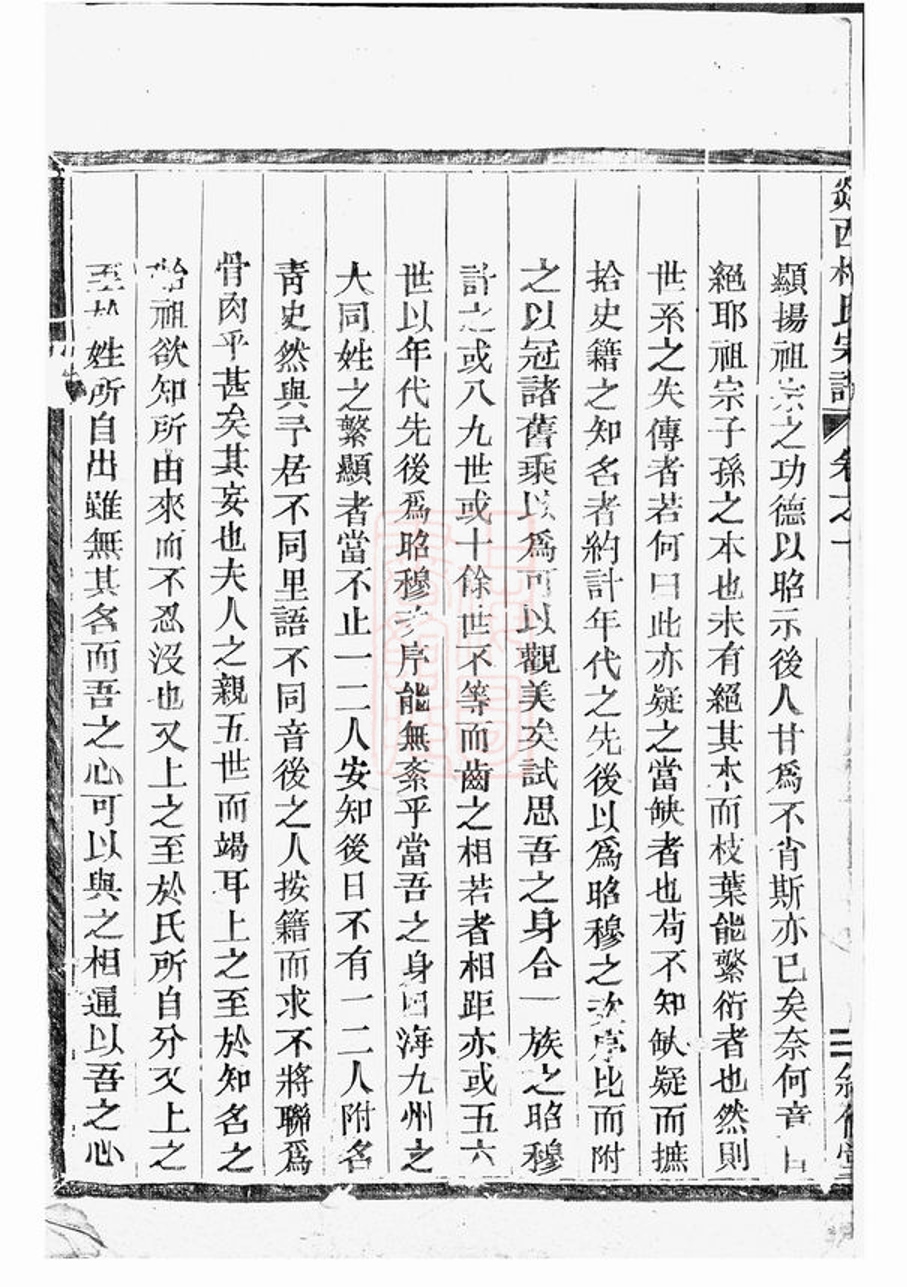 西氏宗譜 卷之
顯揚祖宗之功德以昭示後人甘為不肖斯亦已矣奈何竟
絕耶祖宗子孫之本也未有絕其本而枝葉能繁衍者也然則
世系之失傳者若何曰此亦疑之當缺者也苟不知缺疑而摭
拾史籍之知名者約計年代之先後以爲昭穆之次序比而附
之以冠諸舊乘以爲可以觀美矣試思吾之身合一族之昭穆
計之或八九世或十餘世不等而齒之相若者相距亦或五六
世以年代先後爲昭穆之序能無紊乎當吾之身四海九州之
大同姓之繁顯者當不止一二人安知後日不有一二人附名
靑史然與予居不同里語不同音後之人按籍而求不將聯爲
骨肉乎甚矣其妄也夫人之親五世而竭耳上之至於知名之
始祖欲知所由來而不忍沒也又上之至於氏所自分又上之
至於姓所自出雖無其名而吾之心可以與之相通以吾之心